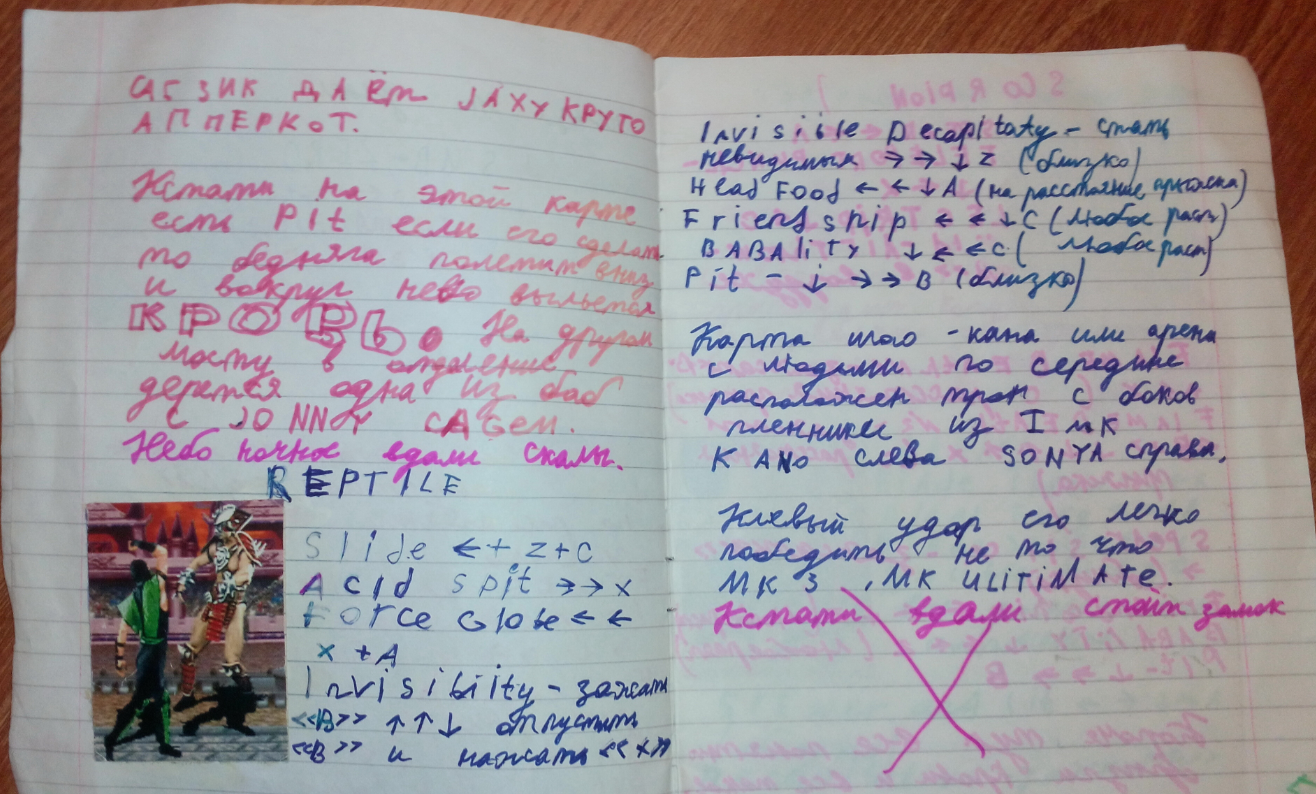 САБЗИК ДАЁт JАХУ КРУТО
АППЕРКОТ.
Кстати на этой карте
есть Pit если его сделать
то бедняга полетит вниз
и вокруг нево выльется
КРОВЬ. На другом
мосту в отдаление
дерется одна из баб
с JONNY CAGEм.
Небо ночное вдали скалы.
REPTILE
Slide ←+ z+c
Acid spit →→x
Force Globe ← ←
x +A
Invisibility - зажать
<<B>> ↑↑↓ отпустить
<<B>> и нажать <<x>>
Invisible Decapitaty - стать
невидимым → → ↓ z (близко)
Head Food ← ← ↓ A (на расстояние прыжка)
Friendship ← ← ↓C (любое раст)
BABAlity ↓ ← ←c ( любое раст)
Pit - ↓ → → B (близко)
Карта шао-кана или арена
с людьми по середине
расположен трон с боков
пленники из I мк
KANO слева SONYA справа.
Клёвый удар его легко
победить не то что
MK 3 , MK ULITIMATE.
Кстати вдали стоит замок